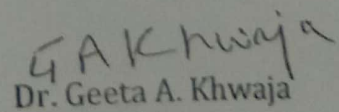 G A Khwaja
Dr. Geeta A. Khwaja